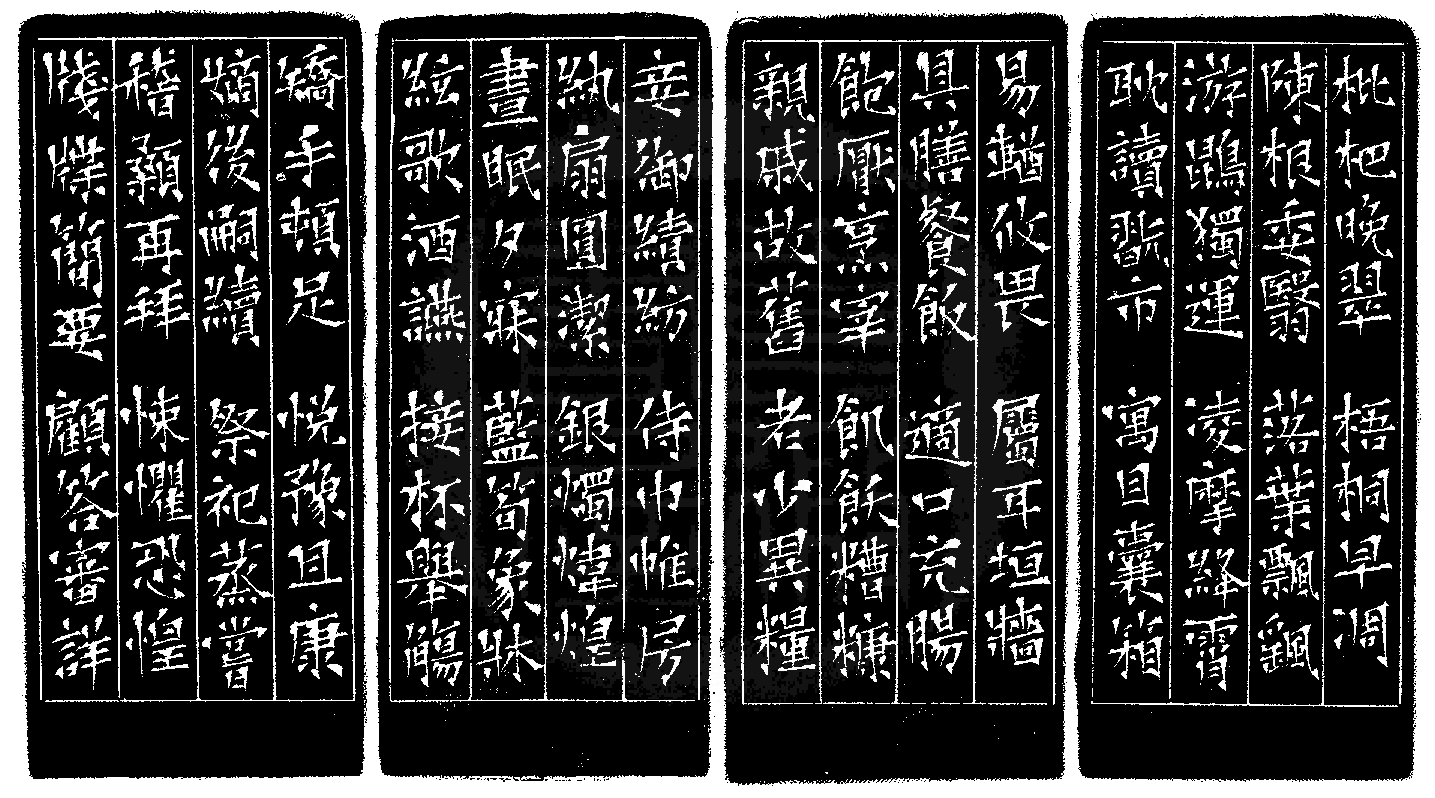 枇杷晚翠 梧桐早凋
陳根委翳 落葉飄颻
游鵾獨運 凌摩絳霄
耽讀翫市 寓目囊箱
易輶攸畏 屬耳垣牆
具膳餐飯 適口充腸
飽厭烹宰 飢飫糟糠
親戚故舊 老少異糧
妾御績紡 侍巾帷房
紈扇圓潔 銀燭煒煌
晝眠夕寐 藍筍象牀
絃歌酒讌 接杯舉觴
矯手頓足 悅豫且康
嫡後嗣續 祭祀蒸嘗
稽顙再拜 悚懼恐惶
牋牒簡要 顧答審詳